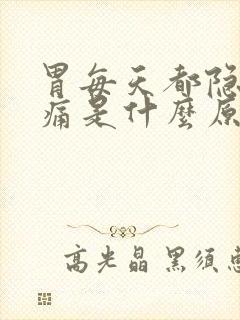 胃每天都隐
痛是什麽原
高光晶 黑须惠